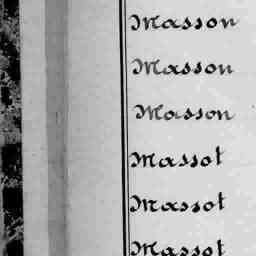 Masson
Masson
Masson
Massot
Massot
Massot